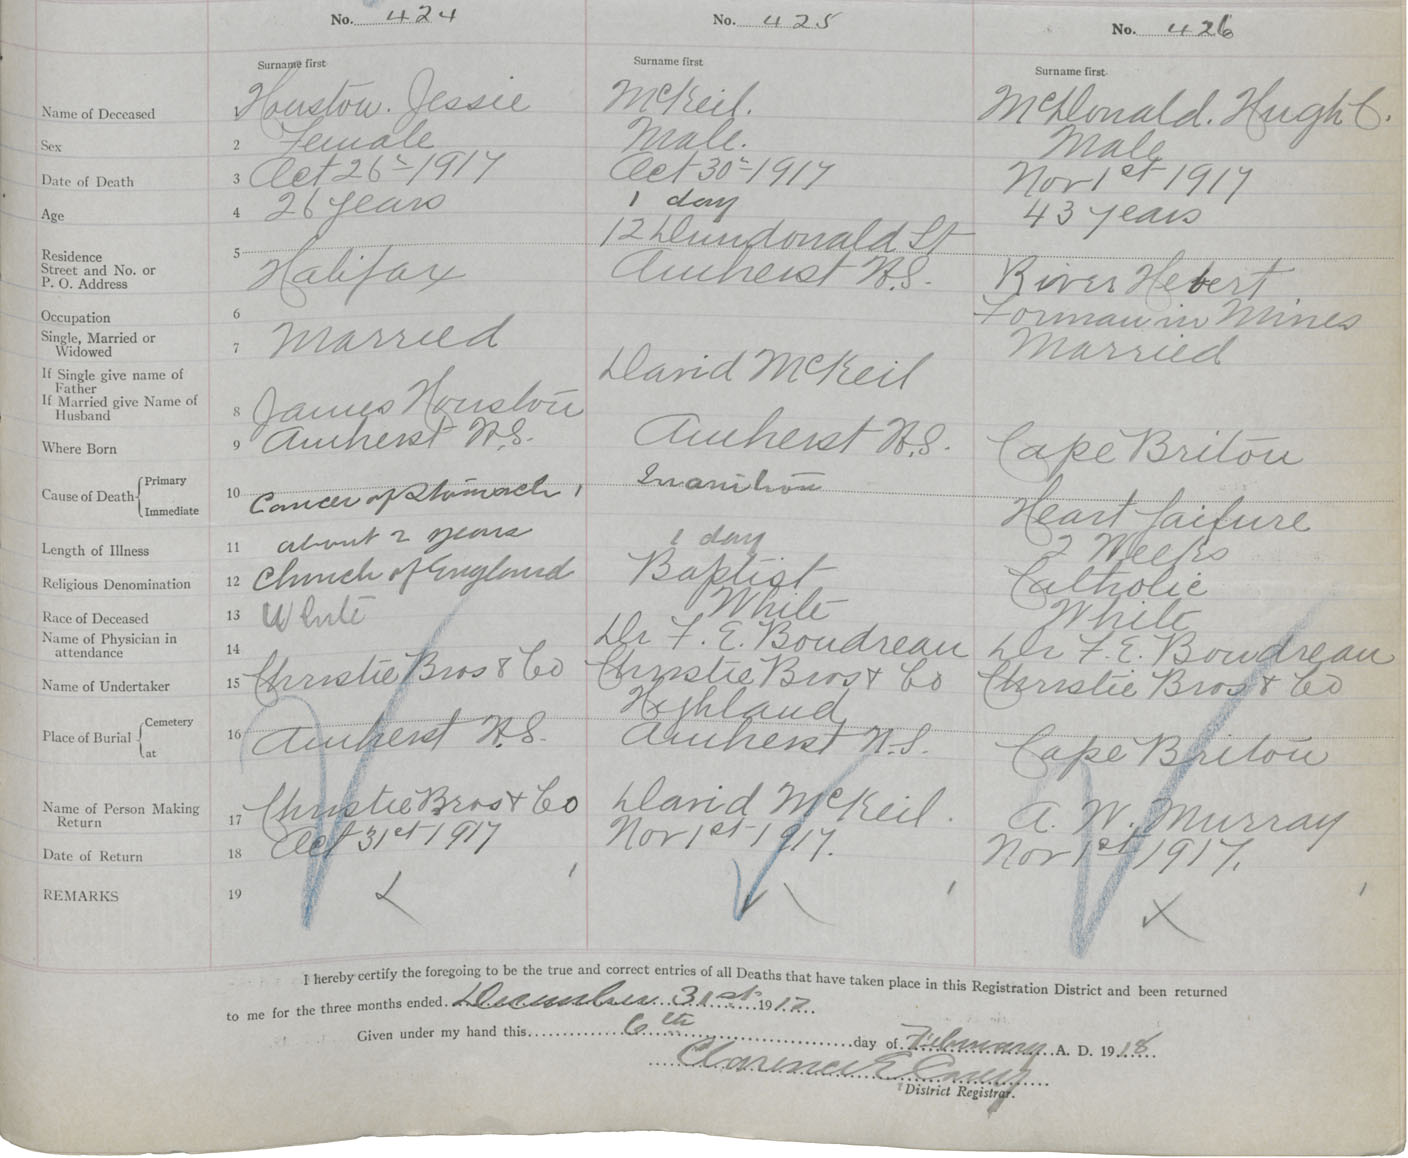 No. 424 No. 425 No. 426
Surname first Surname first Surname first
Name of Deceased 1 Houston. Jessie McKeil. McDonald. Hugh C.
Sex 2 Female Male. Male
Date of Death 3 Oct 26th 1917 Oct 30th 1917 Nov 1st 1917
Age 4 26 years 1 day 43 years
12 Dundonald St
Residence 5
Street and No. or Halifax Amherst N.S. River Hebert
P. O. Address
Occupation 6 Forman in Mines
Single, Married or
Widowed 7 Married Married
If Single give name of David McKeil
Father
If Married give Name of
Husband 8 James Houston
Where Born 9 Amherst N.S. Amherst N.S. Cape Briton
Cause of Death Primary Inanition
Immediate 10 Cancer of Stomach, Heart faifure
Length of Illness 11 about 2 years 1 day 2 Weeks
Religious Denomination 12 Church of England Baptist Catholic
Race of Deceased 13 White White White
Name of Physician in
attendance 14 Dr F. E. Boudreau Dr F. E. Boudreau
Name of Undertaker 15 Christie Bros & Co Christie Bros & Co Christie Bros & Co
Place of Burial Cemetery Highland
at 16 Amherst N.S. Amherst N.S. Cape Briton
Name of Person Making
Return 17 Christie Bros & Co David McKeil. A. W. Murray
Date of Return 18 Oct 31st 1917 Nov 1st 1917. Nov 1st 1917.
REMARKS 19
I hereby certify the foregoing to be the true and correct entries of all Deaths that have taken place in this Registration District and been returned
to me for the three months ended December 31st 1917
Given under my hand this 6th day of February A. D. 1918
Clarence E
District Registrar.